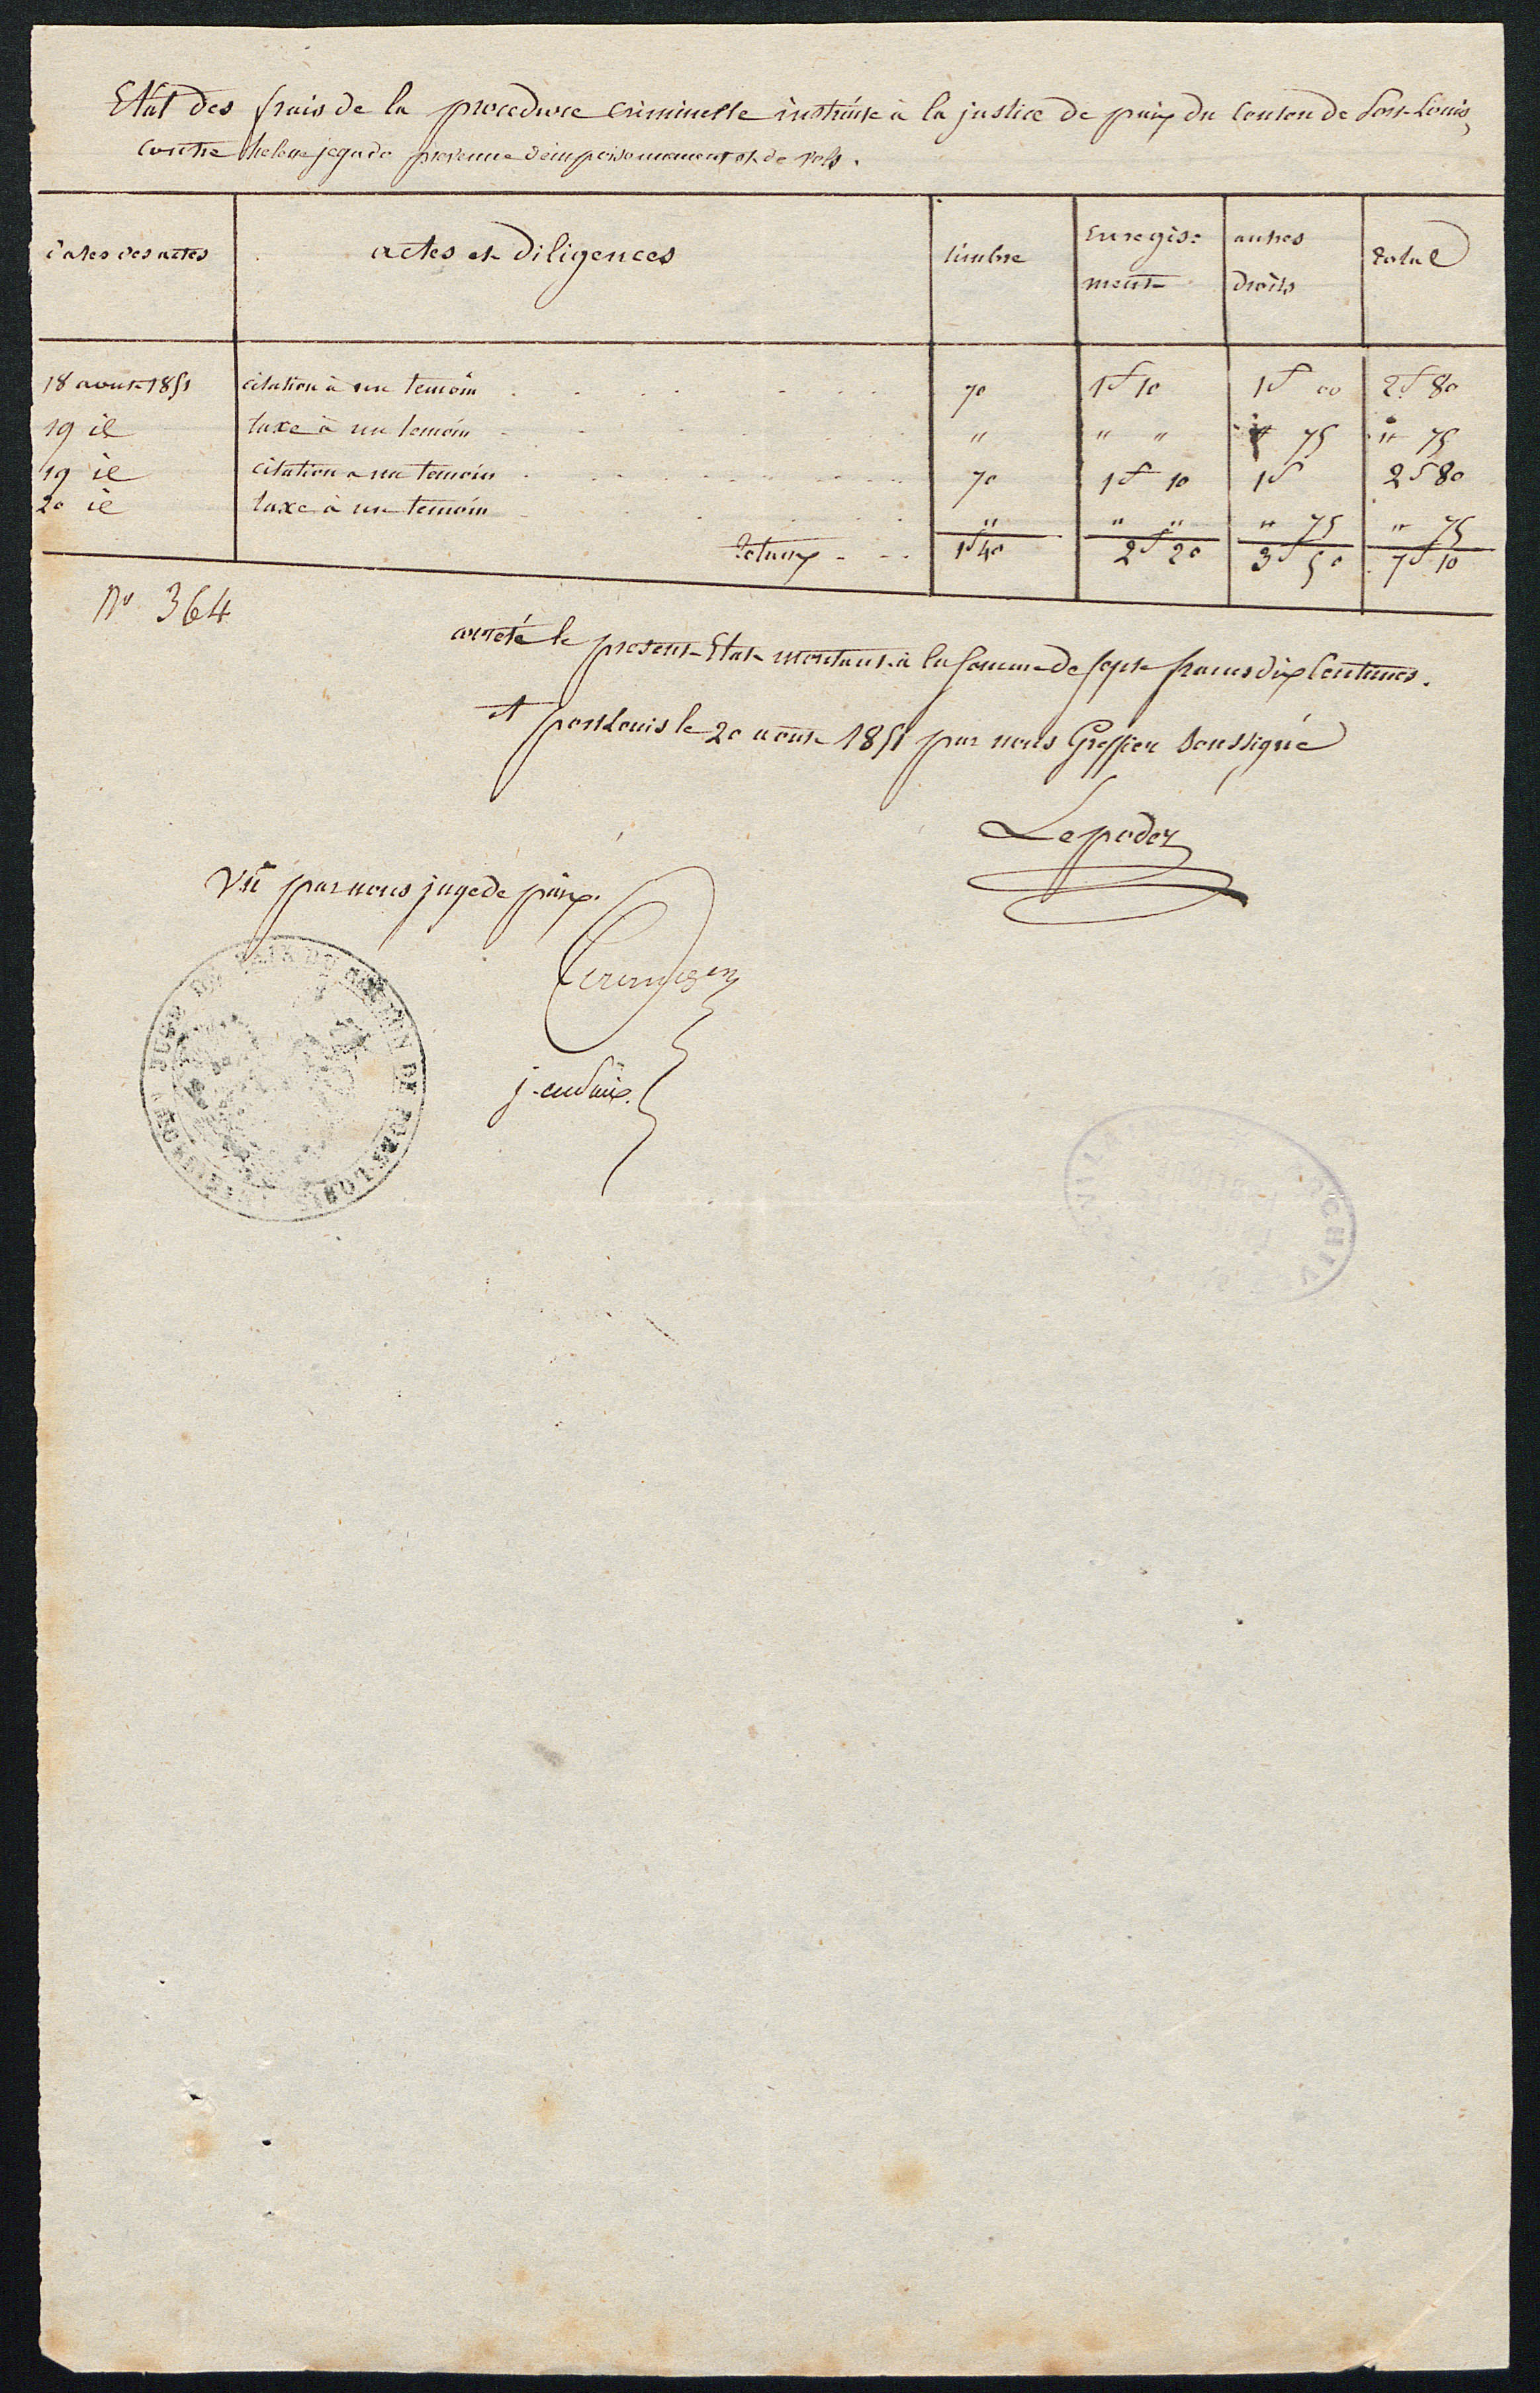 Etat des frais de la procedure criminelle instruite à la justice de paix du Canton de Port-Louis,
contre helene jegado prevenue d'empoisonnement et de vols.
dates des actes actes et Diligences timbre Enregis= ment autres droits total
18 aout 1851 citation à un temoin . . . . . 70 1f 10 1f 00 2f 80
19 id taxe à un temoin . . . . . " " " " 75 " 75
19 id citation a un temoin . . . . . 70 1f 10 1f 2f 80
20 id taxe à un temoin . . . . . " " " " 75 " 75
Totaux . . . 1f 40 2f 20 3f 50 7f 10
N° 364
arreté le present Etat montant à la somme de sept francs dix Centimes.
A port Louis le 20 aout 1851 par nous Greffier Soussigné
Lepodez
Vu par nous juge de paix.
j. de paix.
JUGE DE PAIX DU CANTON DE PORT-LOUIS